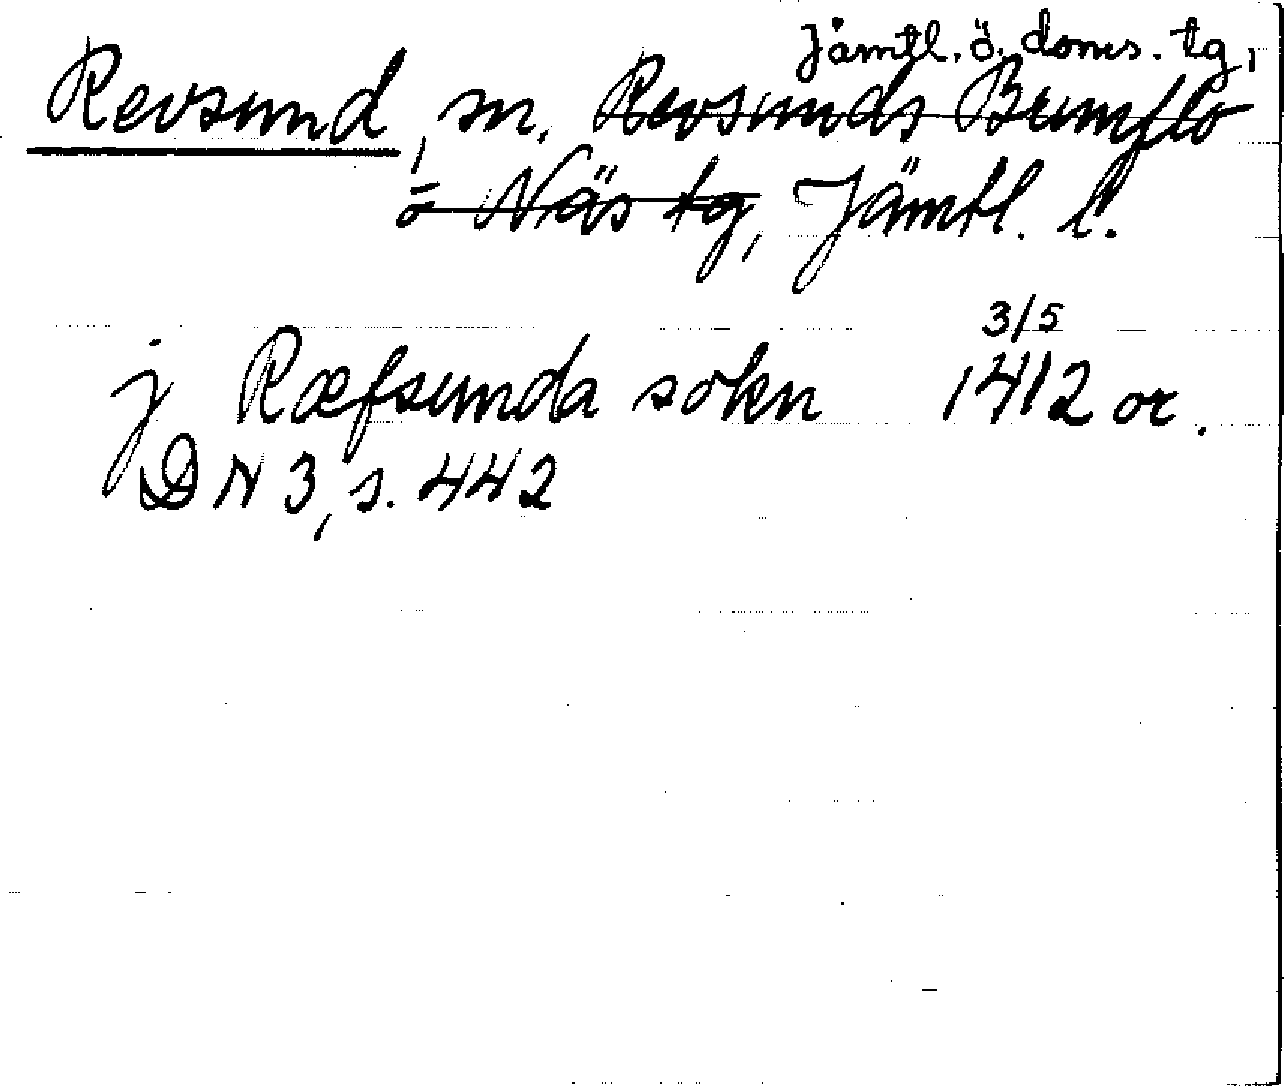 Jämtl. ö. doms. tg,
Revsund, sn. Revsunds Brunflo
o Näs tg, Jämtl. l.
3/5
j Ræfsunda sokn 1412 or.
DN 3, s. 442